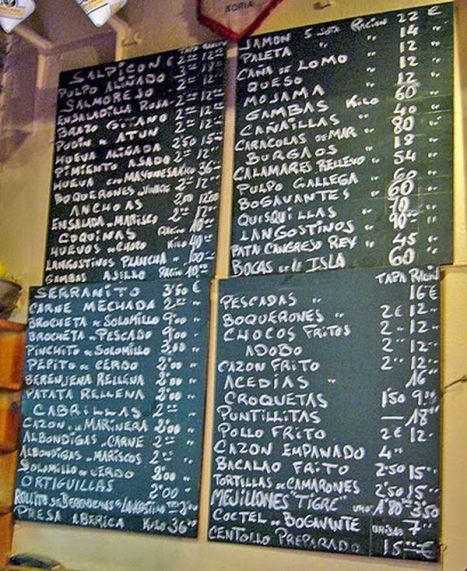 SORIA
TAPA RACION
SALPICON € 2'00 12'00
PULPO ALIÑADO 2'00 12'00
SALMOREJO 2'00 12'00
ENSALADILLA ROSA 2'00 12'00
BRAZO GITANO 2'00 12'00
PUDIN DE ATUN 2'00 12'00
HUEVA ALIÑADA 2'50 15'00
PIMIENTO ASADO 2'00 12'00
HUEVA CON MAYONESA 36'00
BOQUERONES VINAGRE 2'00 12'00
ANCHOAS 2'00
ENSALADA DE MARISCO
COQUINAS RACION
HUEVOS DE CHOCO KILO 40'00
LANGOSTINOS PLANCHA 100'00
GAMBAS AJILLO RACION 10'00
JAMON 5 JOTA RACION 22 €
PALETA " 14 "
CAÑA DE LOMO " 12 "
QUESO " 12 "
MOJAMA " 60 "
GAMBAS KILO
CAÑAILLAS " 40 "
CARACOLAS DE MAR " 80 "
BURGAOS " 18 "
CALAMARES RELLENO " 54 "
PULPO GALLEGA " 60 "
BOGAVANTES " 60 "
QUISQUILLAS "
LANGOSTINOS "
PATA CANGREJO REY " 45 "
BOCAS DE LA ISLA 60 "
SERRANITO 3'50 €
CARNE MECHADA 2'00 "
BROCHETA DE SOLOMILLO 9'00 "
BROCHETA DE PESCADO 9'00 "
PINCHITO DE SOLOMILLO 3'00 "
PEPITO DE CERDO 2'00 "
BERENJENA RELLENA 2'00 "
PATATA RELLENA 2'00 "
CABRILLAS 2'00 "
CAZON DE MARINERA 2'00 "
ALBONDIGAS DE CARNE 2'00 "
ALBONDIGAS DE MARISCOS 2'00 "
SOLOMILLO DE CERDO 2'00 "
ORTIGUILLAS 2'00 "
ROLLITO DE BERENJENAS Y LANGOSTINO 2'00 "
PRESA IBERICA KILO 36'00 "
TAPA RACION
PESCADAS " 16 €
BOQUERONES " 2 € 12 "
CHOCOS FRITOS 2 " 12 "
ADOBO 2 " 12 "
CAZON FRITO 2 " 12 "
ACEDIAS " 16 "
CROQUETAS 1'50 9'00
PUNTILLITAS — 18'00
POLLO FRITO 2 € 12 "
CAZON EMPANADO 4 "
BACALAO FRITO 2'50 15'00
TORTILLAS DE CAMARONES 2'50 15'00
MEJILLONES "TIGRE" UNO 1'80 3'50
COCTEL DE BOGAVANTE UNIDAD 7'00
CENTOLLO PREPARADO 15'00